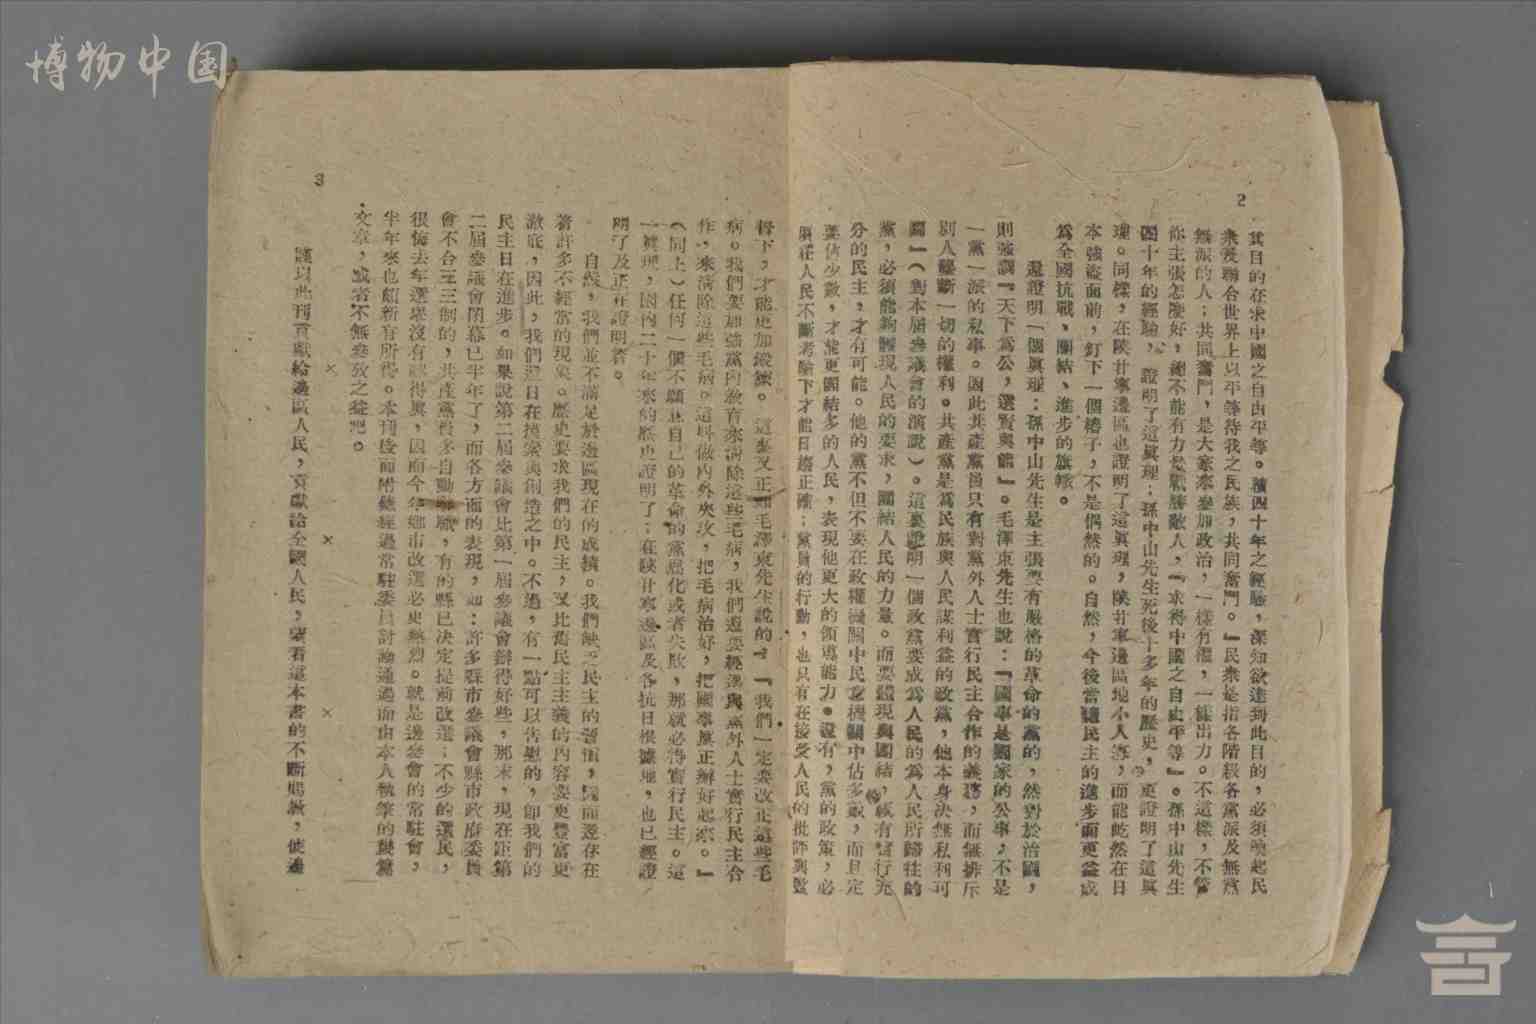 博物中国
2
其目的在求中國之自由平等。積四十年之經驗，深知欲達到此目的，必須喚起民
衆及聯合世界上以平等待我之民族，共同奮鬥。』民衆是指各階級各黨派及無黨
無派的人；共同奮鬥，是大家來參加政治，一樣有權，一樣出力。不這樣，不管
你主張怎麼好，總不能有力量戰勝敵人，『求得中國之自由平等』。孫中山先生
四十年的經驗，證明了這眞理；孫中山先生死後十多年的歷史，更證明了這眞
理。同樣，在陝甘寧邊區也證明了這眞理，陝甘寧邊區地小人寡，而能屹然在日
本強盜面前，釘下一個樁子，不是偶然的。自然，今後當隨民主的進步而更益成
爲全國抗戰、團結、進步的旗幟。
還證明一個眞理：孫中山先生是主張要有嚴格的革命的黨的，然對於治國，
則強調『天下爲公，選賢與能』。毛澤東先生也說：『國事是國家的公事，不是
一黨一派的私事。因此共產黨員只有對黨外人士實行民主合作的義務，而無排斥
別人壟斷一切的權利。共產黨是爲民族與人民謀利益的政黨，他本身決無私利可
圖』（對本屆參議會的演說）。這裏證明一個政黨要成爲人民的爲人民所歸往的
黨，必須能夠體現人民的要求，團結人民的力量。而要體現與團結，祇有實行充
分的民主，才有可能。他的黨不但不要在政權機關中民意機關中佔多數，而且定
要佔少數，才能更團結多的人民，表現他更大的領導能力。還有，黨的政策，必
須在人民不斷考驗下才能日趨正確；黨員的行動，也只有在接受人民的批評與監
督下，才能更加鍛鍊。這裏又正如毛澤東先生說的：『我們一定要改正這些毛
病。我們要加強黨內教育來清除這些毛病，我們還要經過與黨外人士實行民主合
作，來清除這些毛病。這樣做內外夾攻，把毛病治好，把國事眞正辦好起來。』
（同上）任何一個不願意自己的革命的黨惡化或者失敗，那就必得實行民主。這
一眞理，國內二十年來的歷史證明了；在陝甘寧邊區及各抗日根據地，也已經證
明了及正在證明着。
自然，我們並不滿足於邊區現在的成績。我們缺乏民主的習慣，因而還存在
著許多不經常的現象。歷史要求我們的民主，又比舊民主主義的內容要更豐富更
澈底，因此，我們還日在摸索與創造之中。不過，有一點可以告慰的，卽我們的
民主日在進步。如果說第二屆參議會比第一屆參議會辦得好些，那末，現在距第
二屆參議會閉幕已半年了，而各方面的表現，如：許多縣市參議會縣市政府委員
會不合三三制的，共產黨員多自動辭職，有的縣已決定提前改選；不少的選民，
很悔去年選舉沒有認得眞，因而今年鄉市改選必更熱烈。就是邊參會的常駐會，
半年來也頗新有所得。本刊後面附錄經過常駐委員討論通過而由本人執筆的幾篇
文章，或者不無參攷之益吧。
×　×　×
謹以此刊貢獻給邊區人民，貢獻給全國人民，望看這本書的不斷賜教，使邊
3